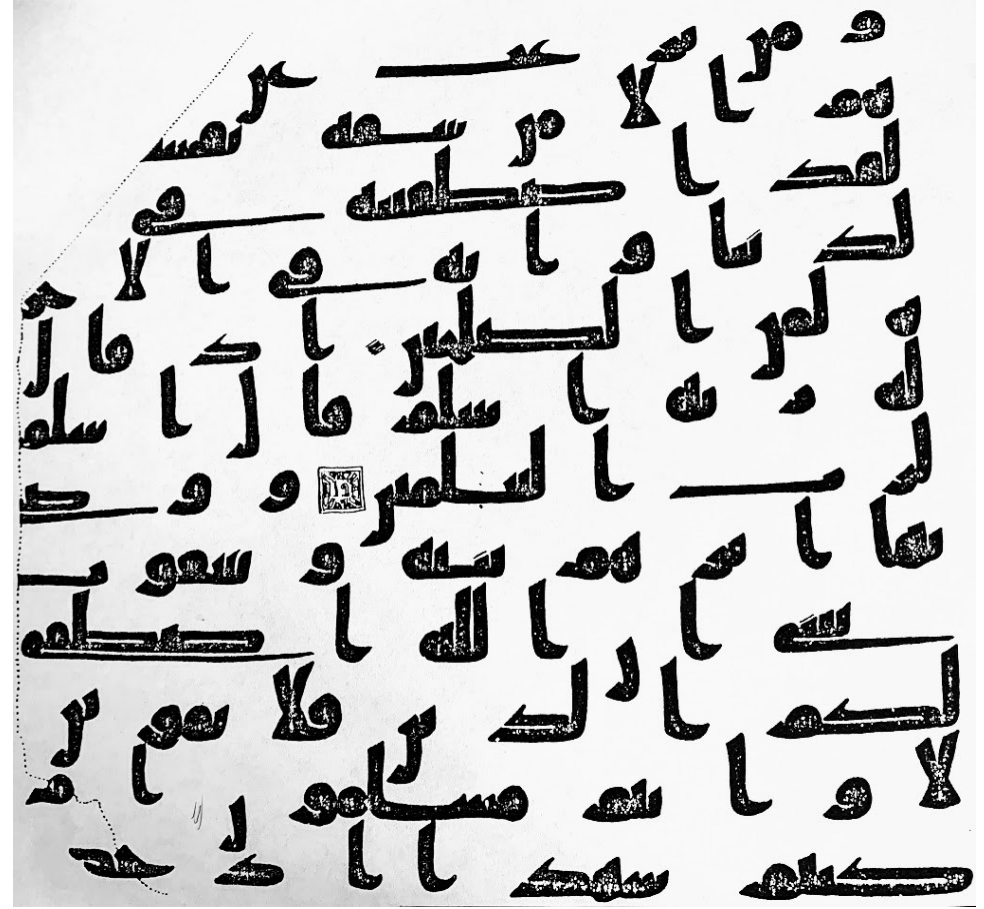 و من يرغب عن
هيم الا من سفه نفسه
لقد اصطفينه في
لدنيا و انه في الاخر
ة لمن الصلحين اذ قال
له ربه اسلم قال اسلمت
لرب العلمين ووصى
بها ابرهم بنيه و يعقوب
يبني ان الله اصطفى
لكم الدين فلا تموتن
الا و انتم مسلمون ام
كنتم شهدا اذ حضر